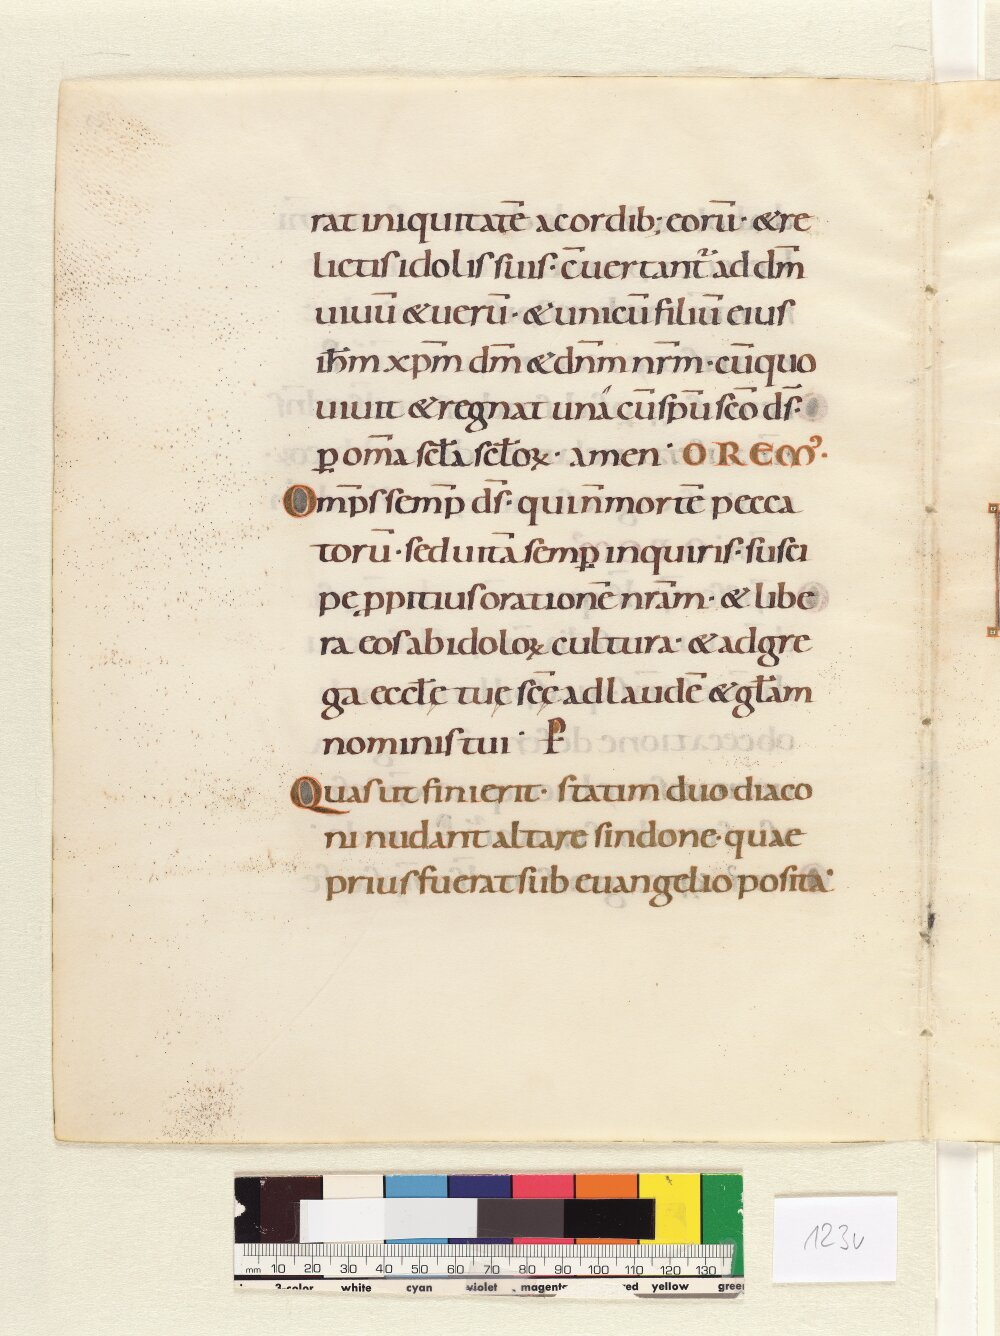 rat iniquitatē a cordib; eorū· & re
lictis idolis suis· c̄uertant᷑ ad dm̄
uiuū & uerū· & unicū filiū eius
ih̄m xp̄m dm̄ & dn̄m nr̄m· cū quo
uiuit & regnat una cū sp̄u sc̄o ds̄·
ꝑ om̄a sc̄ła sc̄łoꝝ· amen· OREMꝰ·
Om̄ps semꝑ ds̄· qui n̄ mortē pecca
torū· sed uitā semꝑ inquiris· susci
pe ꝓpitius orationē nr̄am· & libe
ra eos ab idoloꝝ cultura· & adgre
ga eccłę tuę sc̄ę ad laudē & gl̄am
nominis tui· P̄
Quas ut finierit· statim duo diaco
ni nudant altare sindone· quae
prius fuerat sub euangelio posita·
123v
mm 10 20 30 40 50 60 70 80 90 100 110 120 130
3-color white cyan violet magenta red yellow green